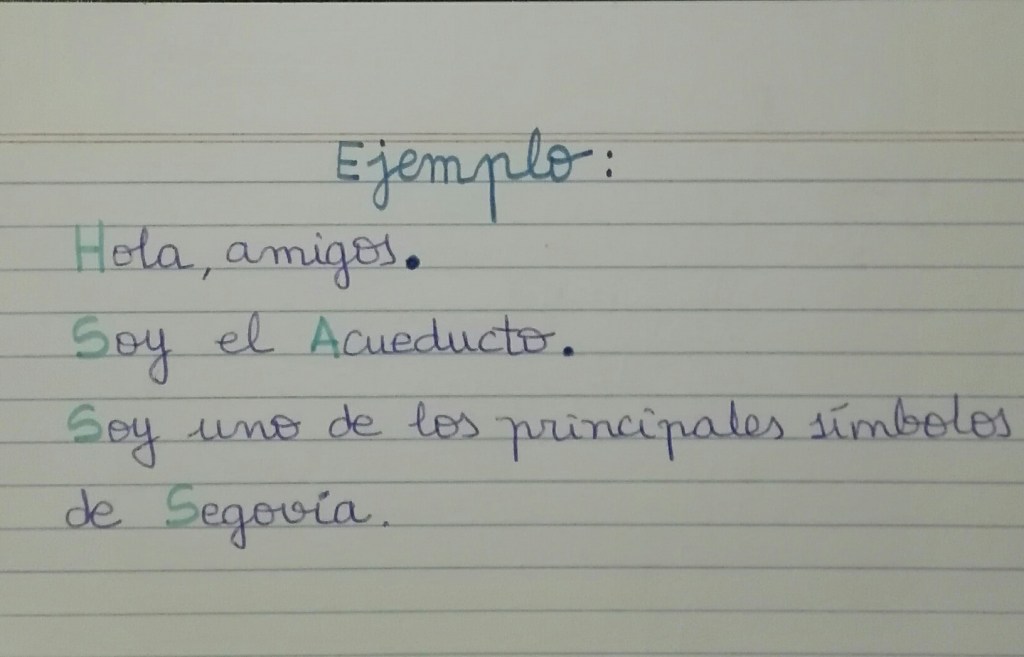 Ejemplo:
Hola, amigos.
Soy el Acueducto.
Soy uno de los principales símbolos
de Segovia.